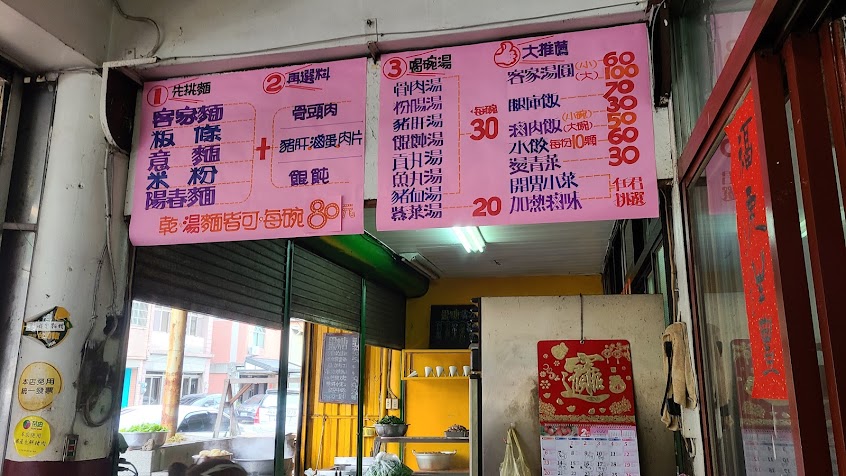 1 先挑麵
客家麵
板條
意麵
米粉
陽春麵
+
2 再選料
骨頭肉
豬肝滷蛋肉片
餛飩
乾·湯麵皆可·每碗80元
3 喝碗湯
骨肉湯
粉腸湯
豬肝湯
餛飩湯
貢丸湯
魚丸湯
豬血湯
紫菜湯
每碗30
20
大推薦
客家湯圓(小)60
(大)100
70
30
滷肉飯(小碗)50
(大碗)60
小餃 每份10顆
燙青菜 30
開胃小菜
加熱滷味
任君挑選
本店使用統一發票